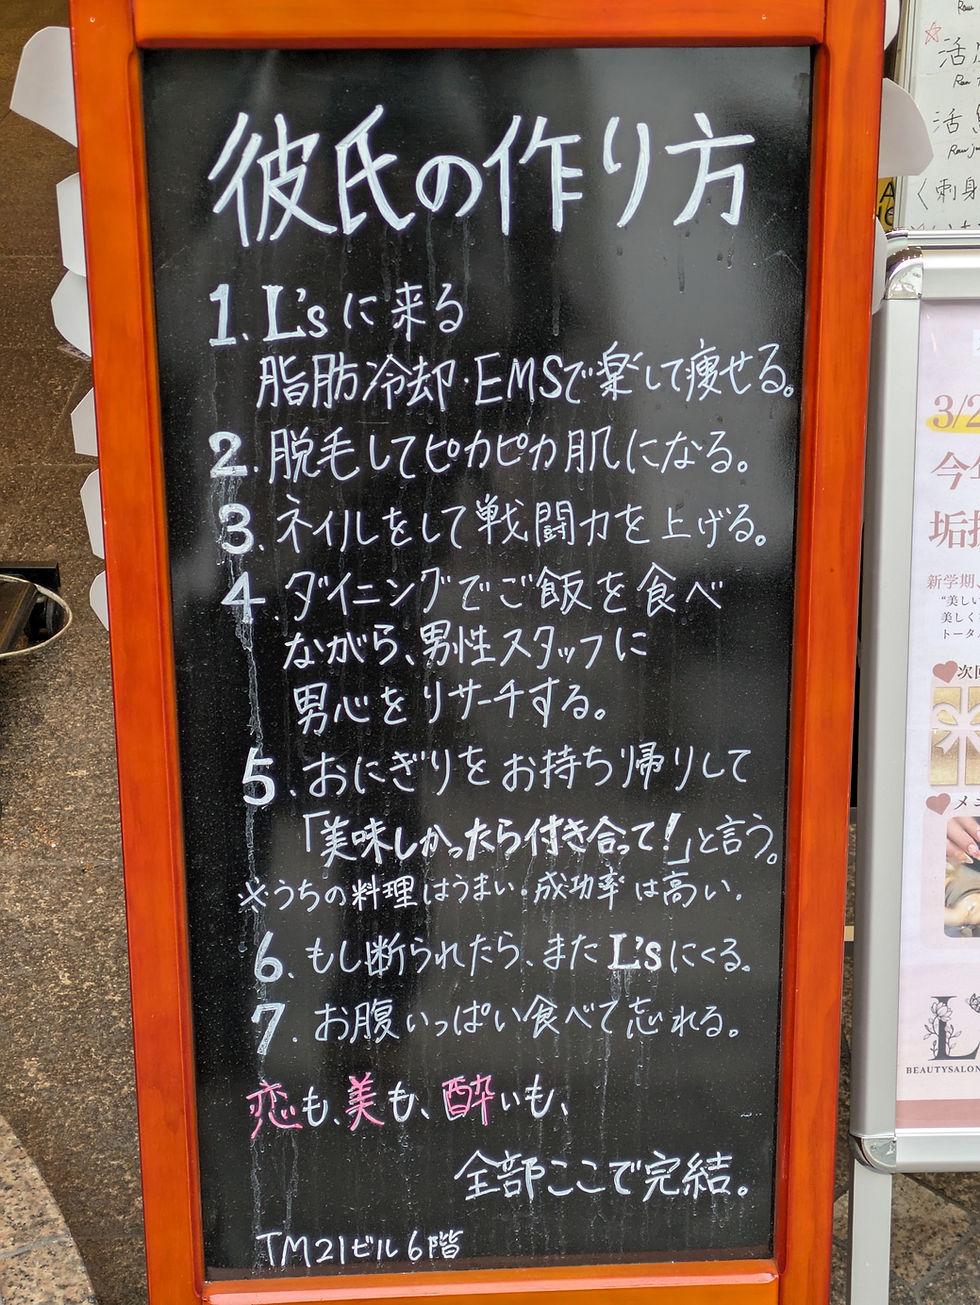 彼氏の作り方
1. L'sに来る
脂肪冷却・EMSで楽して痩せる。
2. 脱毛してピカピカ肌になる。
3. ネイルをして戦闘力を上げる。
4. ダイニングでご飯を食べ
ながら、男性スタッフに
男心をリサーチする。
5. おにぎりをお持ち帰りして
「美味しかったら付き合って!」と言う。
※うちの料理はうまい。成功率は高い。
6. もし断られたら、またL'sにくる。
7. お腹いっぱい食べて忘れる。
恋も、美も、酔いも、
全部ここで完結。
TM21ビル6階
活
活
く刺身
3/2
今
垢
新学期、
美しく
トータ
次回
メニ
BEAUTYSALON